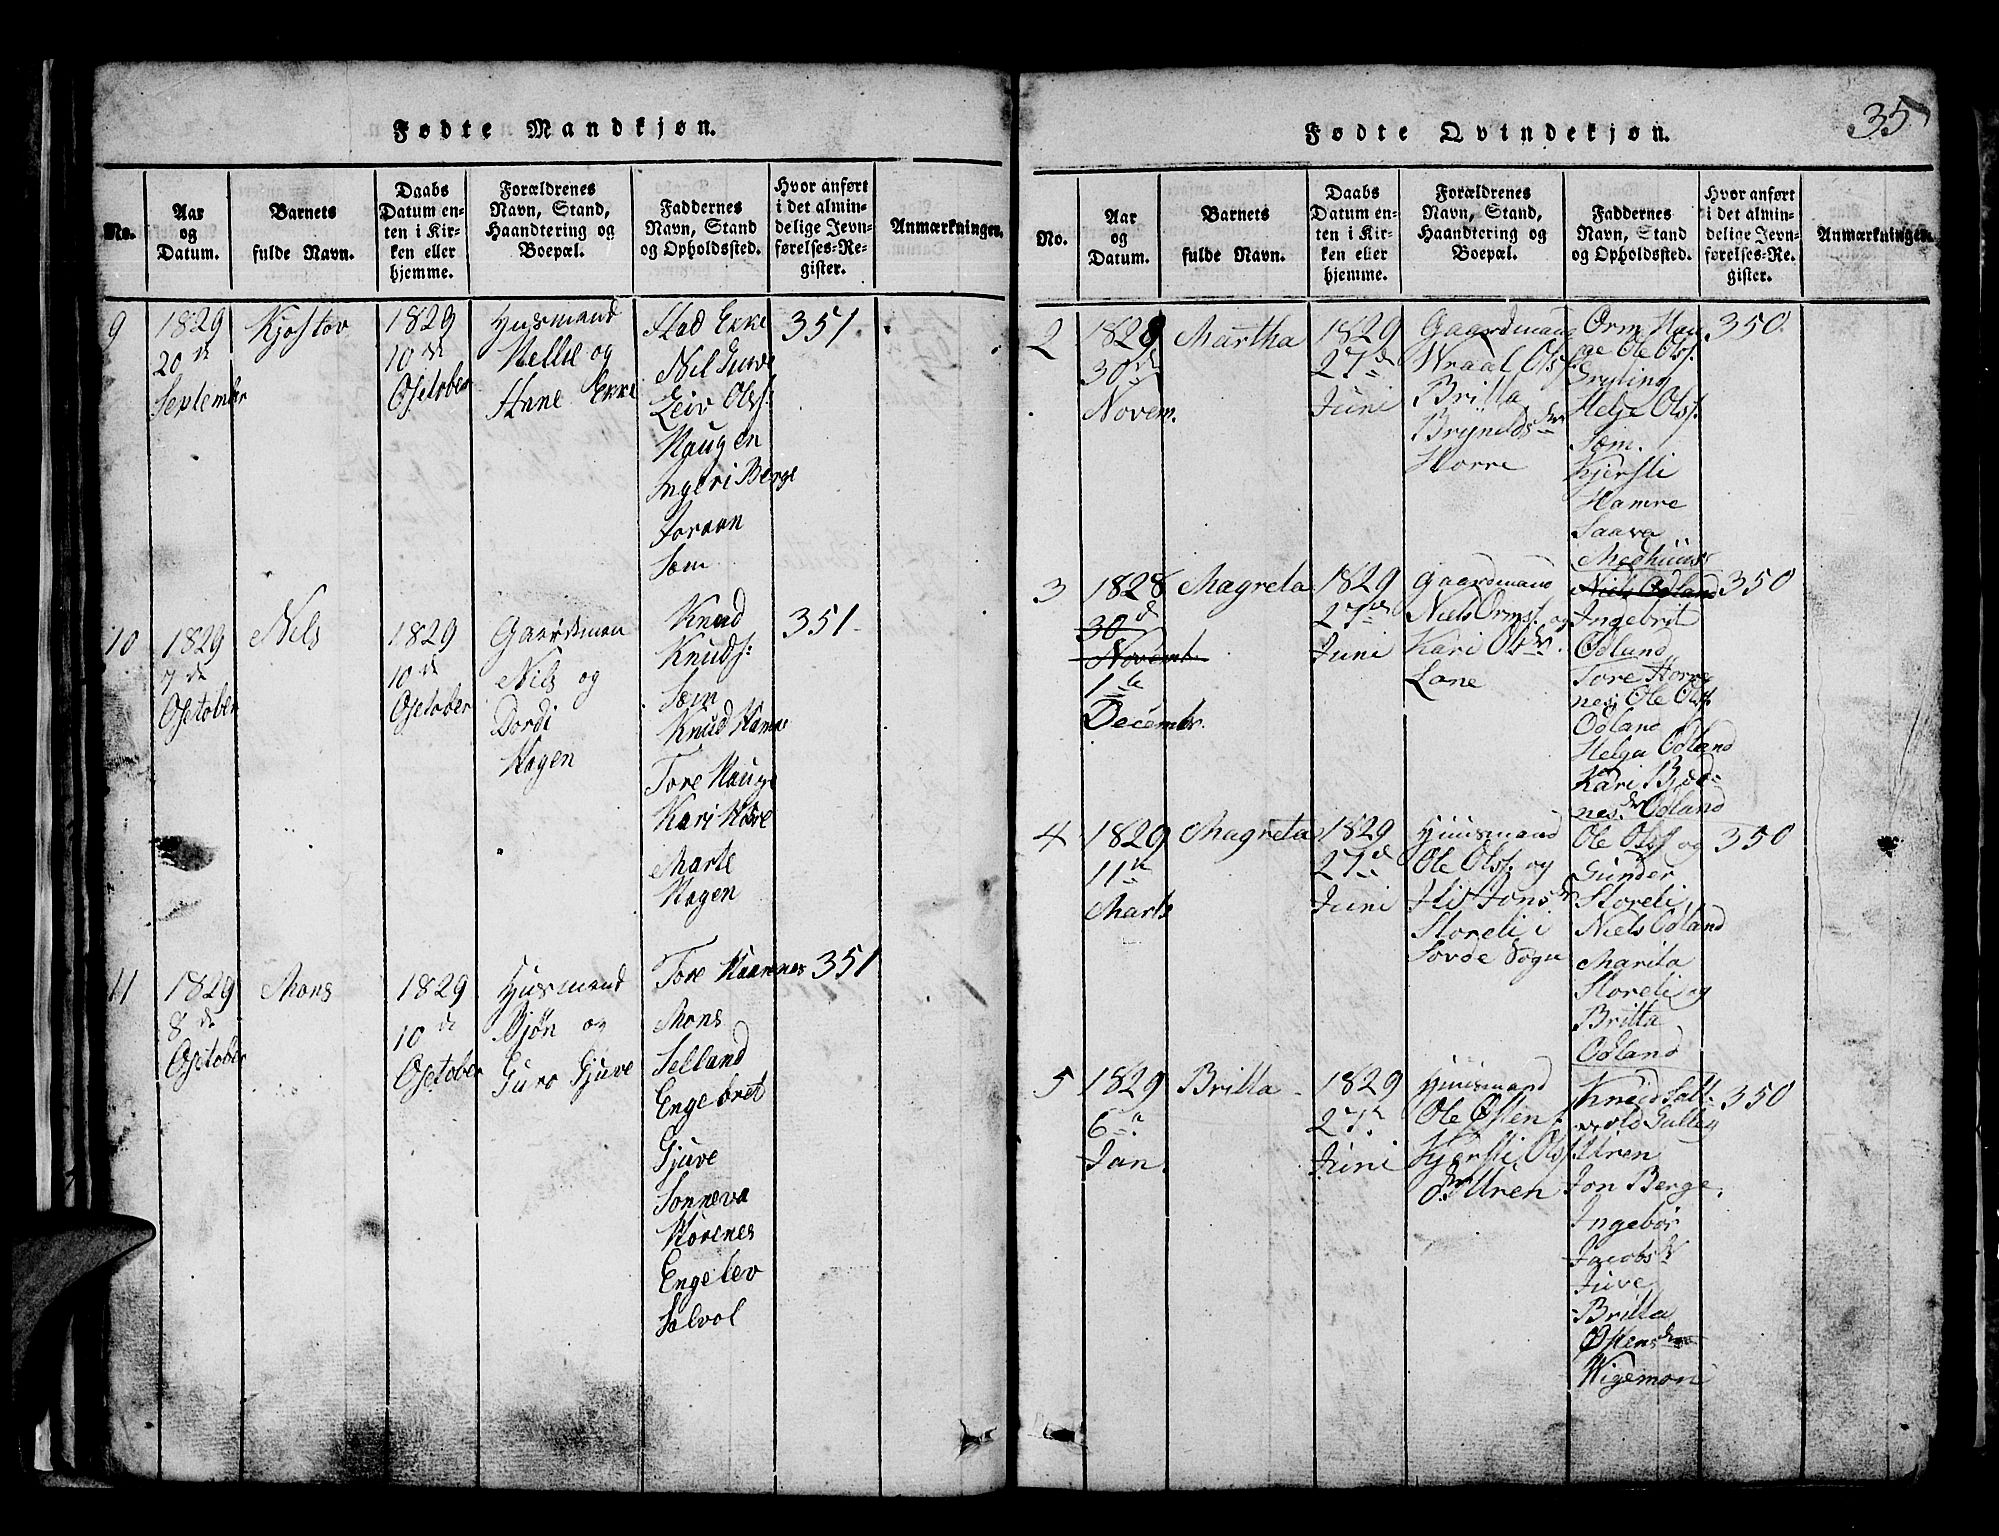 Fødte Mandkjøn.
No.
Aar
og
Datum.
Barnets
fulde Navn.
Daabs
Datum en-
ten i Kir-
ken eller
hjemme.
Forældrenes
Navn, Stand,
Haandtering og
Boepæl.
Faddernes
Navn, Stand
og Opholdssted.
Hvor anført
i det almin-
delige Jevn-
førelses-Re-
gister.
Anmærkninger.
9
1829
20 de
September
Kjøstov
1829
10 de
October
Huusmand
og
351.
Leiv Olss:
Haugen
Ingeri Berge
Joraan
Sæm
10
1829
7 de
October
Nils
1829
10 de
October
Gaardman
Nils og
Dordi
Hagen
Knud
Knuds:
Sæm
Knud Hamre
Tore Hauge
Kari
Marte
Hagen
351.
11
1829
8 de
October
Mons
1829
10 de
October
Husmand
Bjøn og
Guro Gjuve
Tore
Mons
Selland
Engebret
Gjuve
Sonneva
Horenes
Engelev
Salvol
351
35
Fødte Qvindekjøn.
No.
Aar
og
Datum.
Barnets
fulde Navn.
Daabs
Datum en-
ten i Kir-
ken eller
hjemme.
Forældrenes
Navn, Stand,
Haandtering og
Boepæl.
Faddernes
Navn, Stand
og Opholdssted.
Hvor anført
i det almin-
delige Jevn-
førelses-Re-
gister.
Anmærkninger.
2
1828
30 de
Novem.
Martha
1829
27 de
Juni
Gaardmand
Wraal Olss.
Britta
Brynelds dr
Horre
Orm Hau
ge Ole Olss.
Helje Olss.
Sæm.
Kjersti
Hamre
Saava
Medhuus
350.
3
1828
30 d
Novemb.
1 te
Decembr.
Magreta
1829
27 de
Juni
Gaardmand
Niels Ormss. og
Kari Ols dr.
Lone
Niels Odland
Ingebrit
Odland
Tore Horre
nes, Ole Olss
Odland
Helga Odland
Kari
nes. dr Odland
350
4
1829
11 te
Marts
Magreta
1829
27 de
Juni
Huusmand
Ole Olss. og
Jons dr
Storeli i
Sovde Sogn
Ole Olss og
Gunder
Storeli,
Niels Odland
Marita
Storeli og
Britta
Odland
350
5
1829
6 te
Jan.
Britta
1829
27 de
Juni
Huusmand
Ole Østen
Kjersti Olss.
dr Uren
Knud Salt-
Uren
Jon Berge,
Ingebør
Jacobs dr
Juve
Britta
Østens dr
Wigemon
350